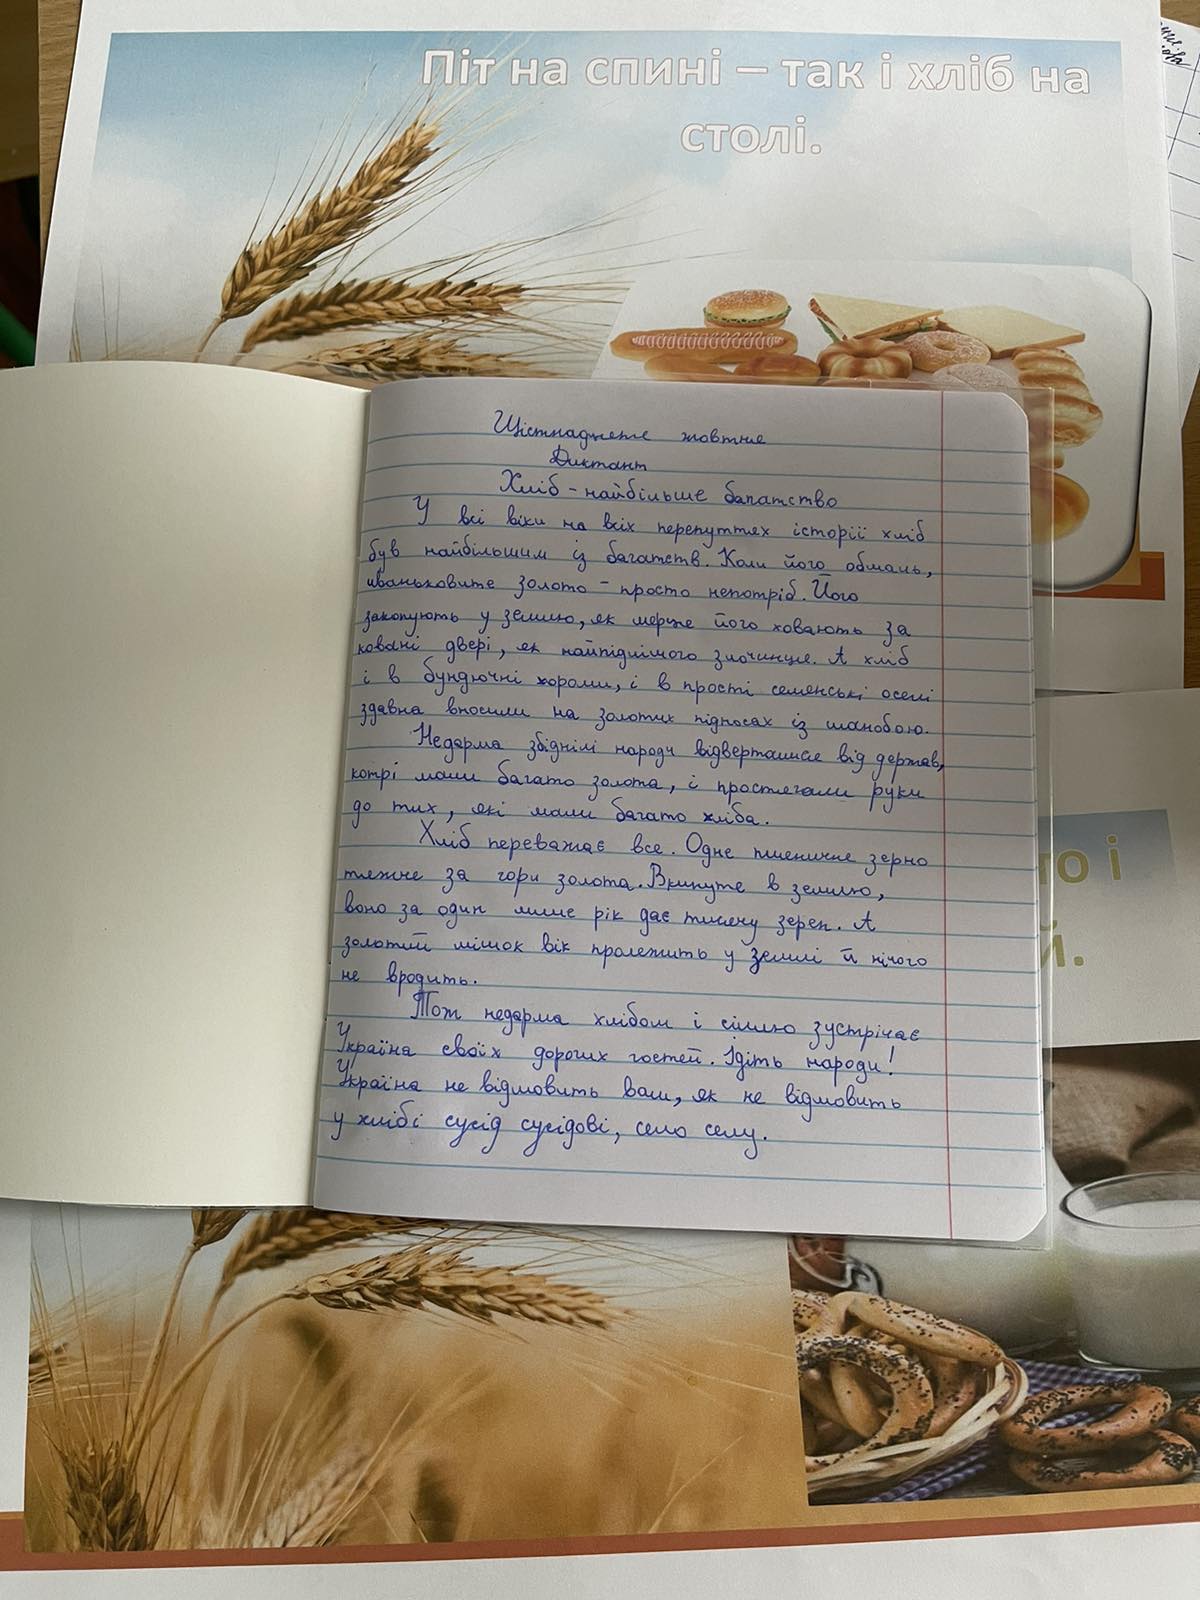 Піт на спині – так і хліб на
столі.
Шістнадцяте жовтня
Диктант
Хліб – найбільше багатство
У всі віки на всіх перепуттях історії хліб
був найбільшим із багатств. Коли його обмаль,
золото – просто непотріб. Його
закопують у землю, як мерця його ховають за
ковані двері, як найпіднімого злочинця. А хліб
і в бундючні хороми, і в прості селянські оселі
здавна вносили на золотих підносах із шанобою.
Недарма збіднілі народи відверталися від держав,
котрі мали багато золота, і простягали руки
до тих, які мали багато хліба.
Хліб переважає все. Одне пшеничне зерно
тяжче за гори золота. Вкинуте в землю,
воно за один лише рік дає тисячу зерен. А
золотий мішок вік пролежить у землі й нічого
не вродить.
Тож недарма хлібом і сіллю зустрічає
Україна своїх дорогих гостей. Ідіть народи!
Україна не відмовить вам, як не відмовить
у хлібі сусід сусідові, село селу.
но і
й.